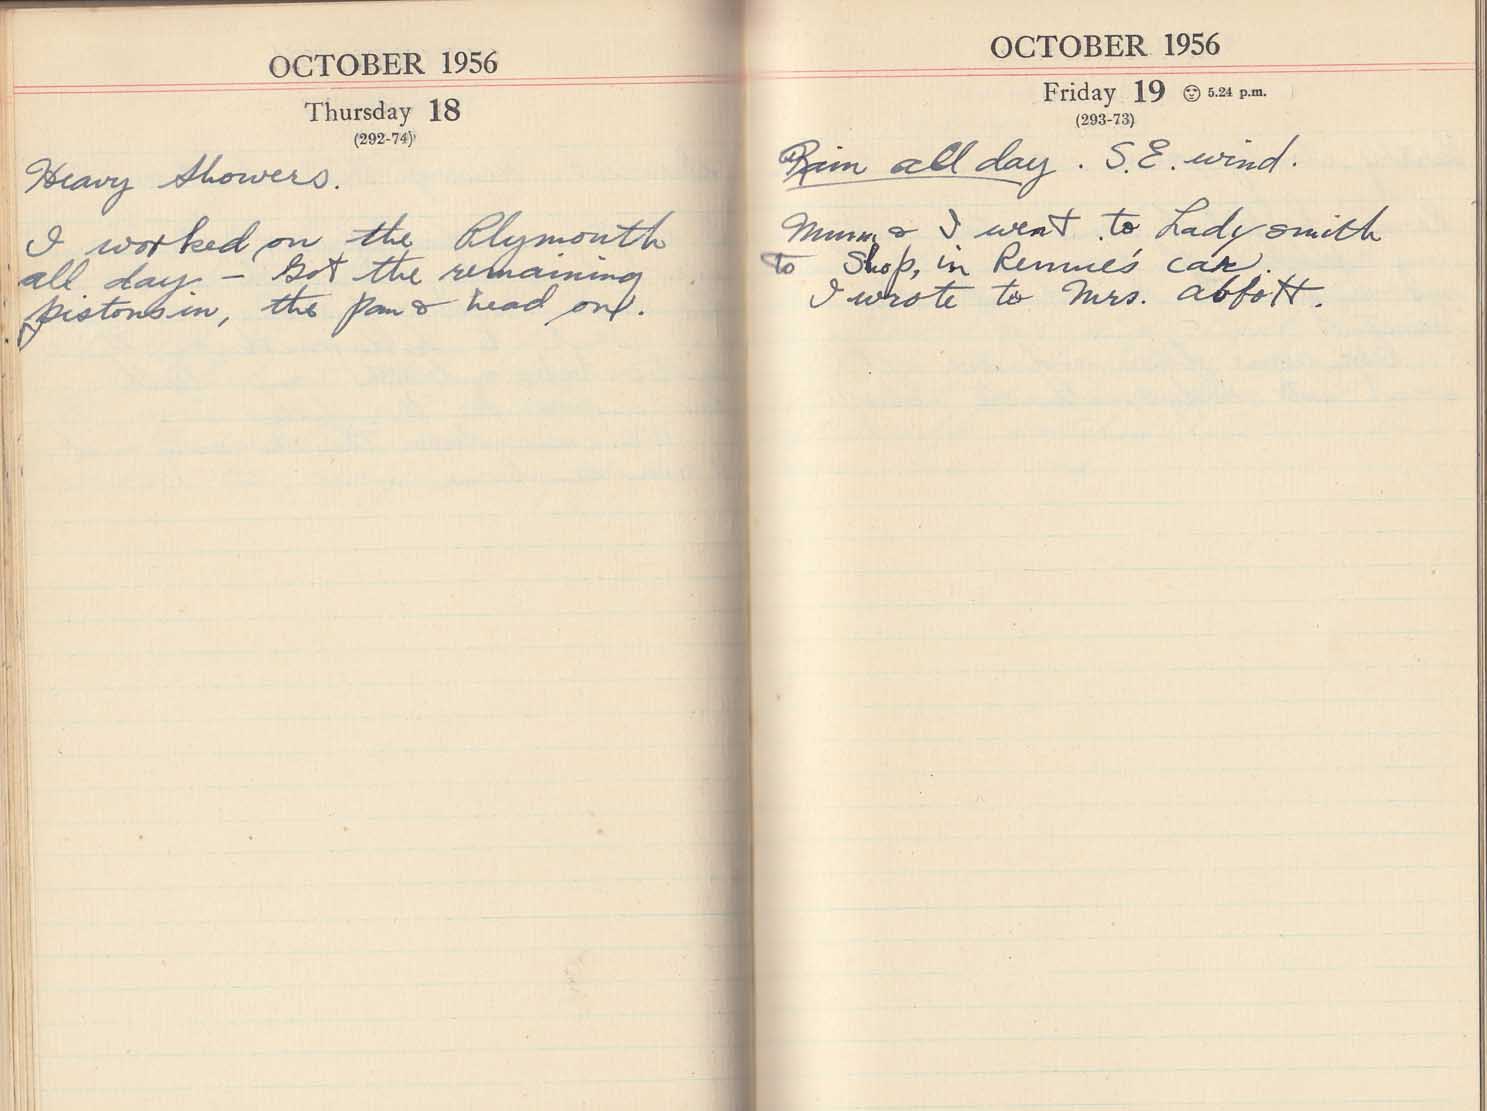 OCTOBER 1956
Thursday 18
(292-74)
Heavy Showers.
I worked on the Plymouth
all day – Got the remaining
pistons in, the pan & head on.
OCTOBER 1956
Friday 19 5.24 p.m.
(293-73)
Rain all day. S.E. wind.
Mum & I went to Ladysmith
to Shop, in Rennie's car.
I wrote to Mrs. Abbott.